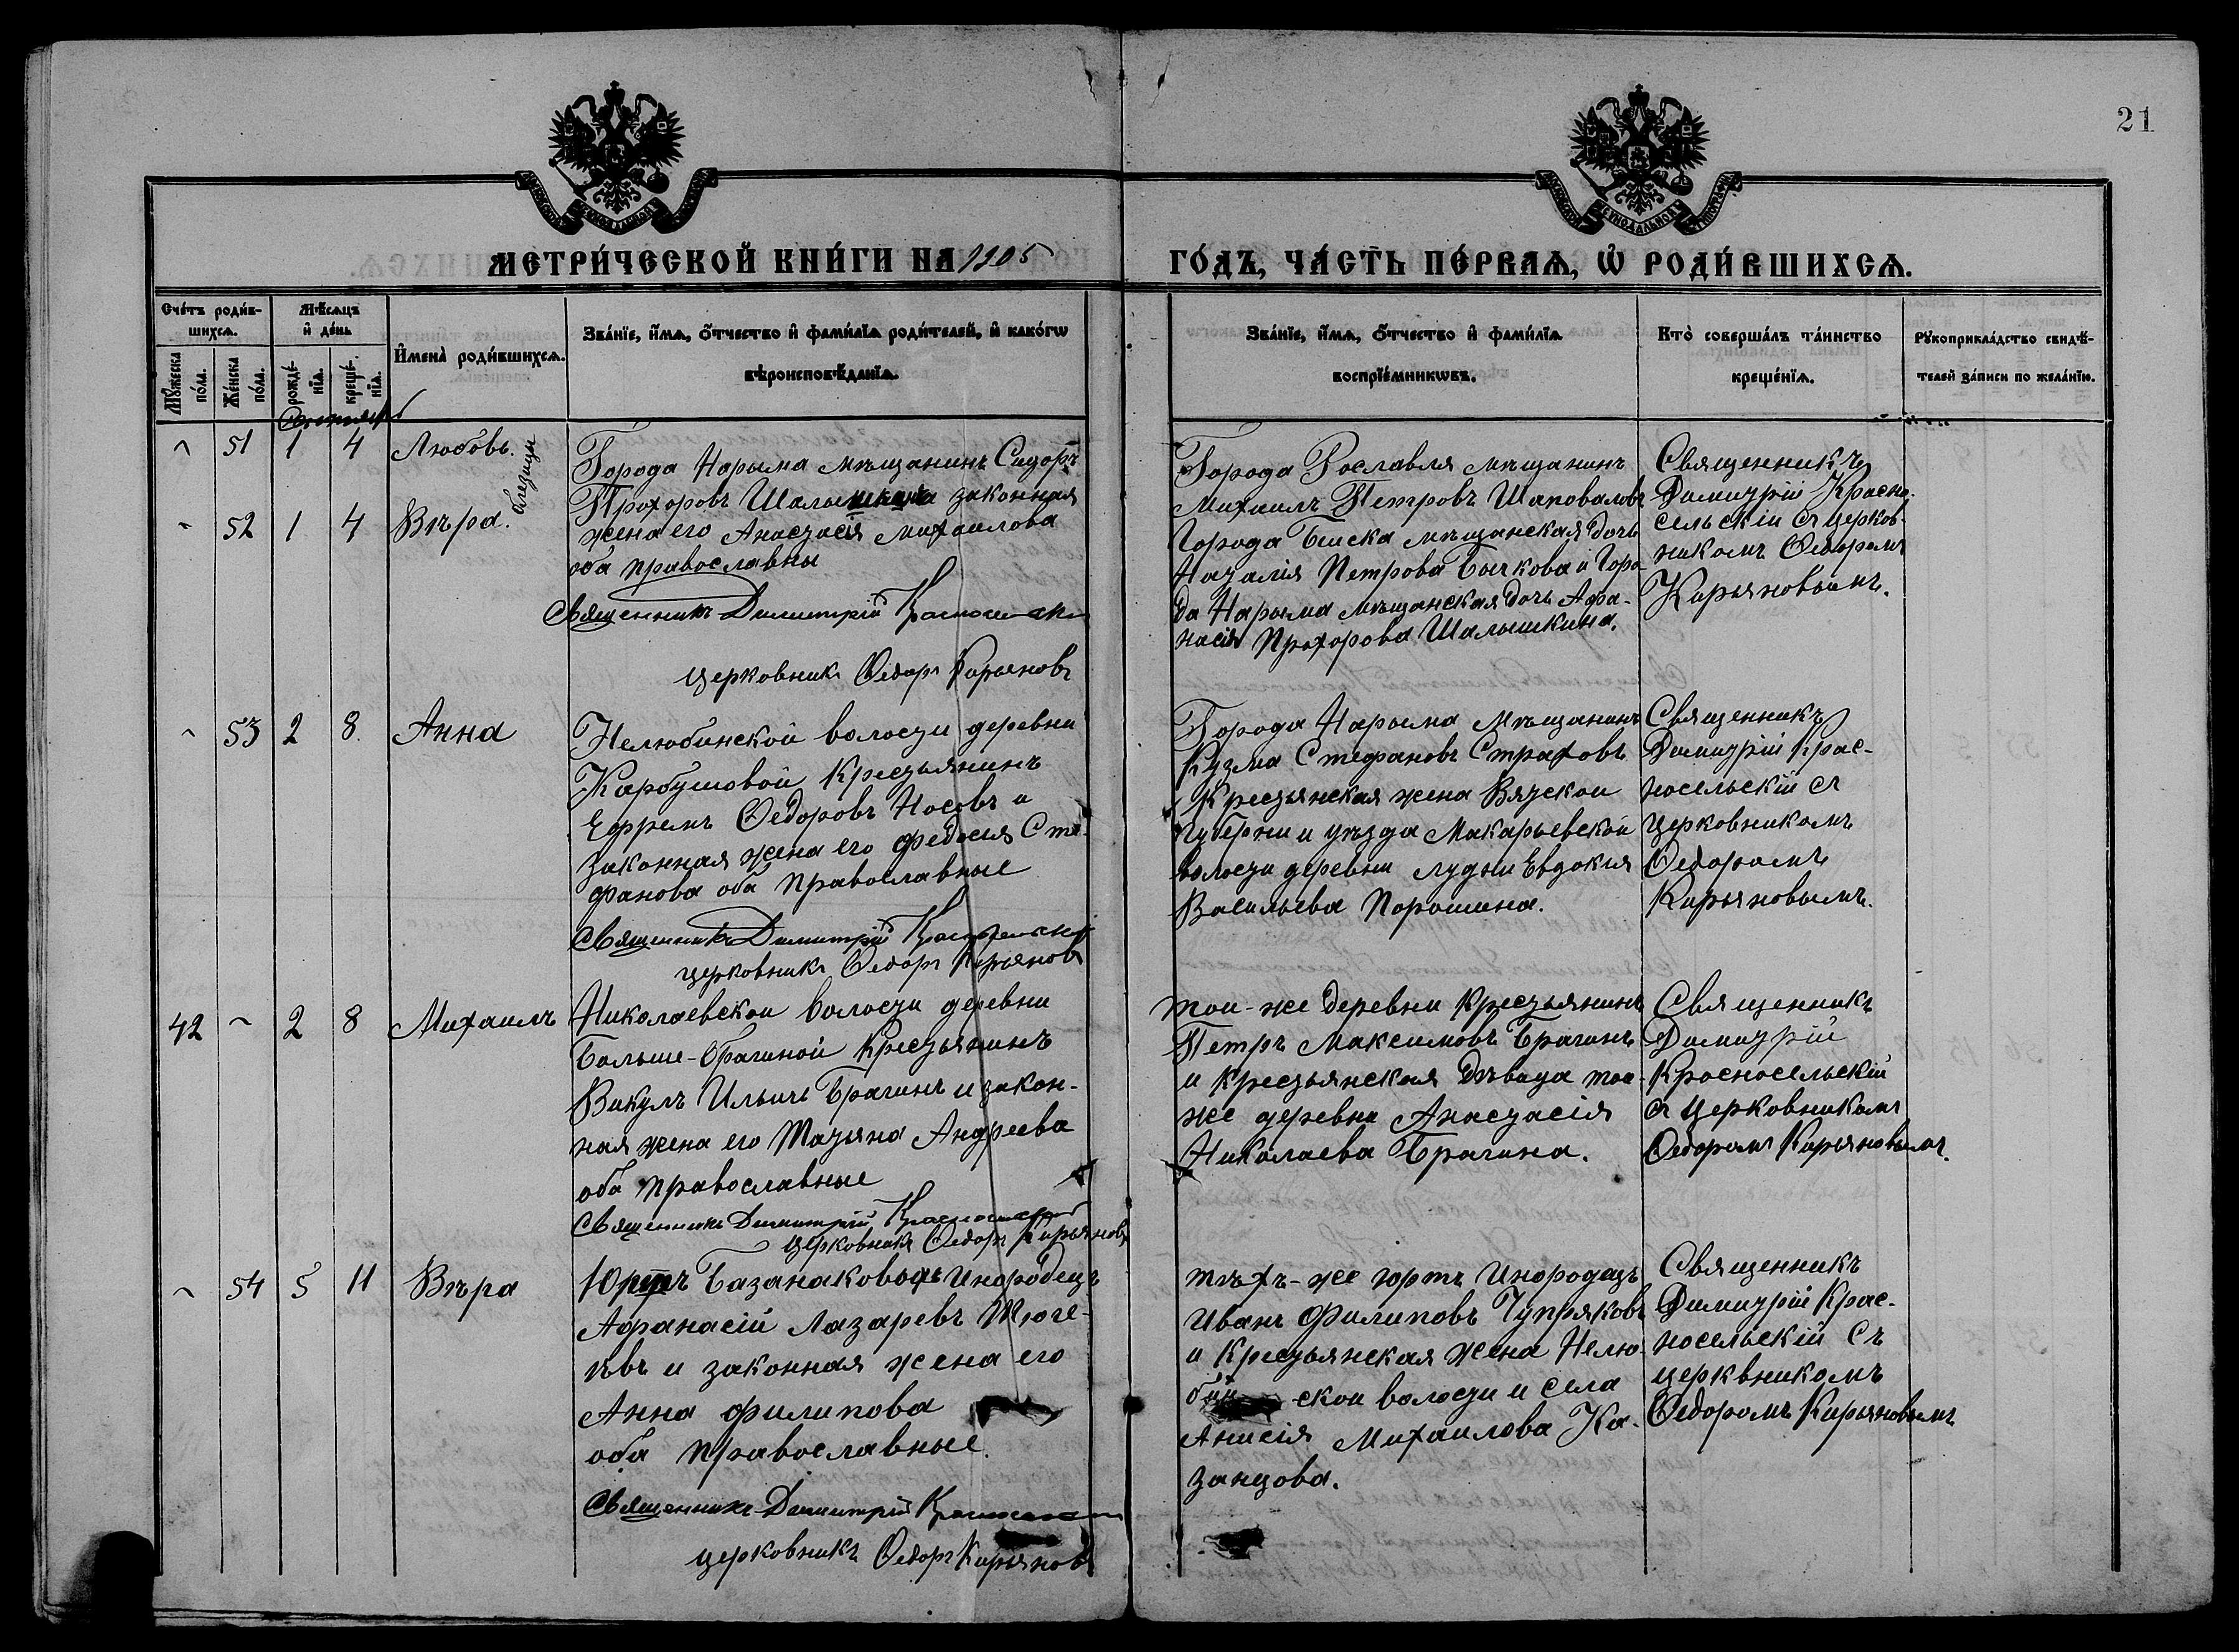 21
МЕТРИ́ЧЕСКОЙ КНИ́ГИ НА 1905
ГО́ДЪ, ЧА́СТЬ ПЕ́РВАѦ, Ѡ҆ РОДИ́ВШИХСѦ.
Сче́тъ роди́в-
шихсѧ.
Мѣ́сѧцъ
и҆ де́нь
И҆мена̀ роди́вшихсѧ.
Зва́нїе, и҆́мѧ, ѻ҆́тчество и҆ фами́лїѧ роди́телей, и҆ како́гѡ
вѣроисповѣ́данїѧ.
Мꙋ́жеска
по́ла.
Же́нска
по́ла.
рожде́-
нїѧ.
креще́-
нїѧ.
Зва́нїе, и҆́мѧ, ѻ҆́тчество и҆ фами́лїѧ
воспрїе́мникѡвъ.
Кто̀ соверша́лъ та́инство
креще́нїѧ.
Рꙋкоприкла́дство свидѣ́-
телей за́писи по жела́нїю.
51 1 4 Любовь.
52 1 4 Вѣра.
близнецы
Города Нарыма мѣщанинъ Сидоръ
Прохоровъ законная
жена его Анастасія Михаилова
оба православны
Священникъ Димитрій Красносельскій
церковникъ Ѳедоръ Кирьяновъ
Города Рославля мѣщанинъ
Михаилъ Петровъ Шаповаловъ
Города Бійска мѣщанская дочь
Наталія Петрова Бычкова и Горо-
да Нарыма мѣщанская дочь Афа-
насія Прохорова Шалышкина.
Священникъ
Димитрій Красно-
сельскій съ церков-
никомъ Ѳедоромъ
Кирьяновымъ.
53 2 8. Анна
Нелюбинской волости деревни
Карбышовой Крестьянинъ
Ефремъ Ѳедоровъ Носовъ и
законная жена его Федосія Сте-
фанова оба православные
Священникъ Димитрій Красносельскій
церковникъ Ѳедоръ Кирьяновъ
Города Нарыма мѣщанинъ
Кузма Стефановъ Страховъ
Крестьянская жена Вятской
губерни и уѣзда Макарьевской
волости деревни Лудни Евдокия
Васильева Порошина.
Священникъ
Димитрій Крас-
носельскій съ
церковникомъ
Ѳедоромъ
Кирьяновымъ.
42 2 8 Михаилъ
Николаевской волости деревни
Больше-Брагиной Крестьянинъ
Викулъ Ильичъ Брагинъ и закон-
ная жена его Татьяна Андреева
оба православные
Священникъ Димитрій Красносельскій
церковникъ Ѳедоръ Кирьяновъ
той-же деревни Крестьянинъ
Петръ Максимовъ Брагинъ
и крестьянская дѣвица той-
же деревни Анастасія
Николаева Брагина.
Священникъ
Димитрій
Красносельскій
съ церковникомъ
Ѳедоромъ Кирьяновымъ.
54 5 11 Вѣра
Юртъ Базанаковыхъ Инородецъ
Афанасій Лазаревъ Тюге-
ѣвъ и законная жена его
Анна Филипова
оба православные.
Священникъ Димитрій Красносельскій
церковникъ Ѳедоръ Кирьяновъ
тѣхъ-же юртъ Инородецъ
Иванъ Филиповъ Чупряковъ
и Крестьянская жена Нелю-
бин ской волости и села
Анисія Михаилова Ка-
занцова.
Священникъ
Димитрій Крас-
носельскій Съ
церквникомъ
Ѳедоромъ Кирьяновымъ